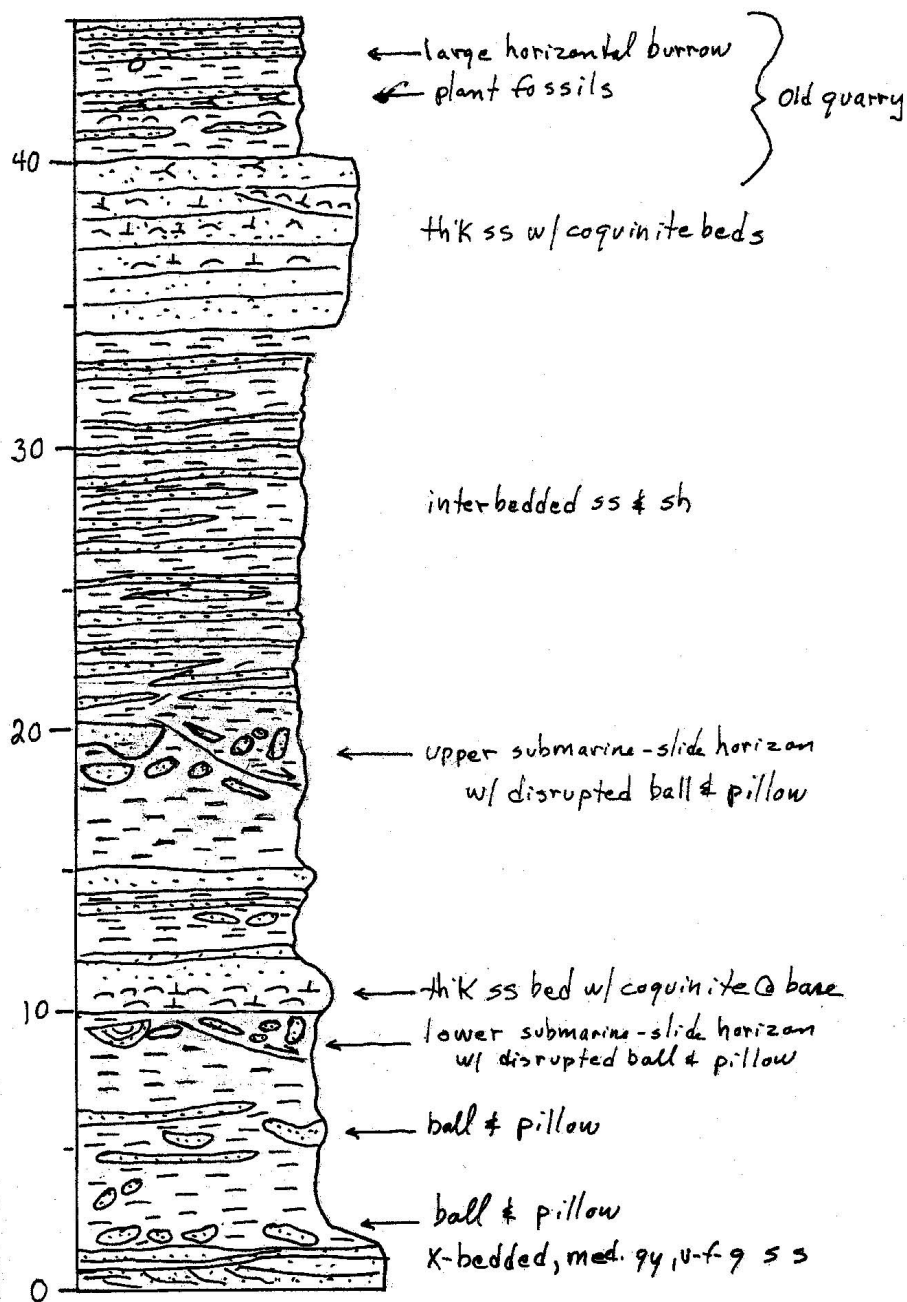 large horizontal burrow
plant fossils
Old quarry
40
thk ss w/ coquinite beds
30
interbedded ss & sh
20
upper submarine-slide horizon
w/ disrupted ball & pillow
thk ss bed w/ coquinite @ base
10
lower submarine-slide horizon
w/ disrupted ball & pillow
ball & pillow
ball & pillow
X-bedded, med. gy, v-f-g ss
0